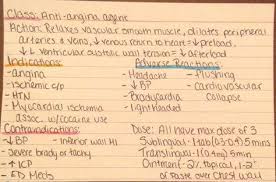 Class: Anti-angina agent
Action: Relaxes vascular smooth muscle, dilates peripheral
arteries & veins, ↓ venous return to heart = ↓ preload,
↓↓ ventricular diastolic wall tension = ↓ afterload
Indications:
-angina
-ischemic c/p
-HTN
-Myocardial ischemia
assoc. w/cocaine use
Adverse Reactions:
-Headache
-↓BP
-Bradycardia
-lightheaded
-Flushing
-cardiovascular
collapse
Contraindications:
-↓BP
-Inferior wall MI
-Severe brady or tachy
-↑ICP
-ED Meds
Dose: All have max dose of 3
Sublingual- 1 tab (0.3-0.4) 5mins
Translingual- 1 (0.4) 5 min
Ointment- 2% topical, 1-2"
of paste over chest wall